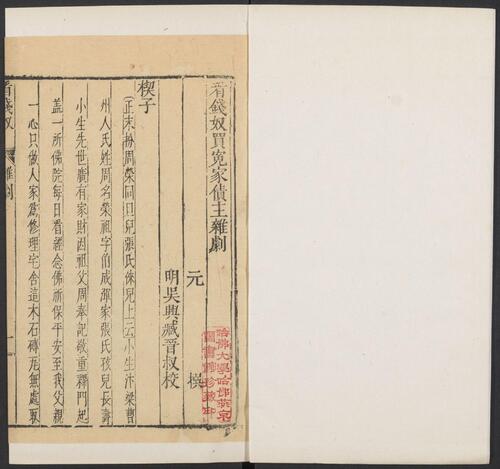 看錢奴買冤家債主雜劇
元 撰
明吳興臧晉叔校
楔子
(正末扮周榮同旦兒張氏俫兒上云)小生汴梁曹
州人氏姓周名榮祖字伯成渾家張氏孩兒長壽
小生先世廣有家財因祖父周奉記敬重釋門起
蓋一所佛院每日看經念佛祈保平安至我父親
一心只做人家為修理宅舍這木石磚瓦無處取
看錢奴 雜劇 一
哈佛大學哈佛燕京
圖書館珍藏印